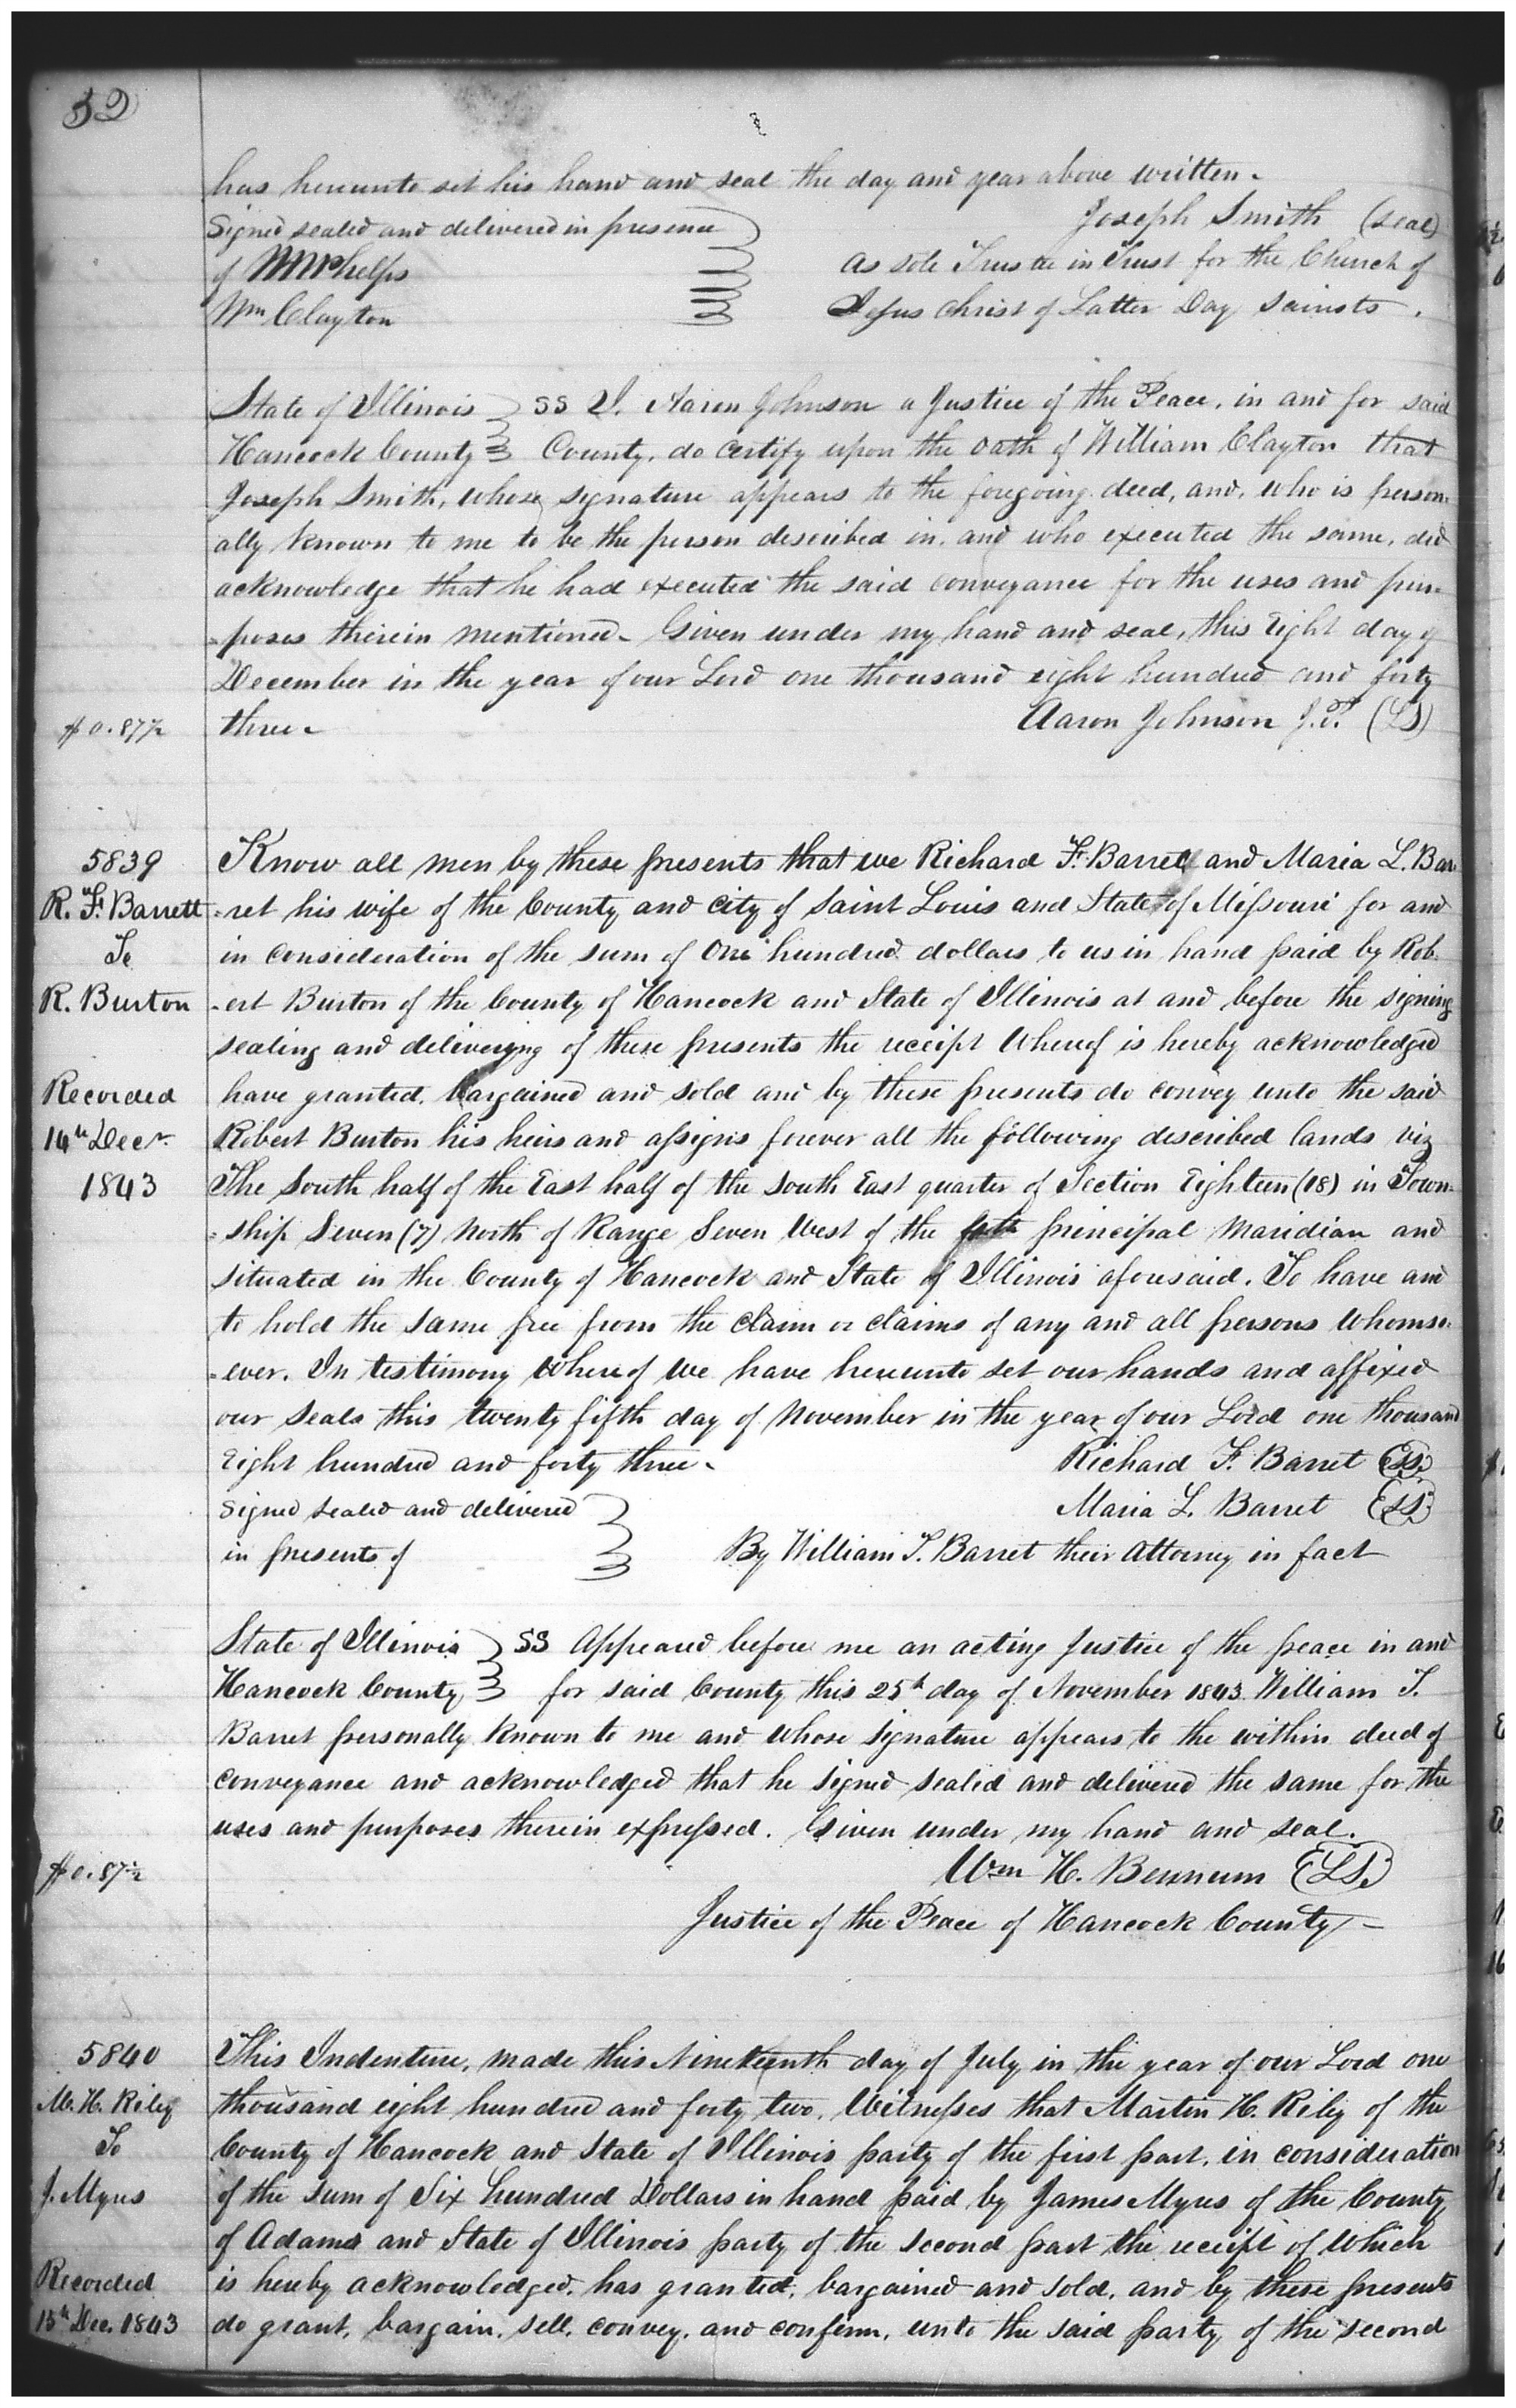 52
has hereunto set his hand and seal the day and year above written.
Signed sealed and delivered in presence
Joseph Smith (seal)
of WWPhelps
As sole Trustee in Trust for the Church of
Wm Clayton
Jesus Christ of Latter Day Sainsts.
State of Illinois SS I. Aaron Johnson a Justice of the Peace, in and for said
Hancock County County, do certify upon the oath of William Clayton that
Joseph Smith, whose signature appears to the foregoing deed, and, who is person-
ally known to me to be the person described in, and who executed the same, did
acknowledge that he had executed the said conveyance for the uses and pur-
-poses therein mentioned. Given under my hand and seal, this Eight day of
December in the year of our Lord one thousand eight hundred and forty
$0.87½ three. Aaron Johnson J.P. (LS)
5839
R. F. Barrett
To
R. Burton
Recorded
14th Decr.
1843
Know all men by these presents that we Richard F. Barrett and Maria L. Bar-
-ret his wife of the County and City of Saint Louis and State of Missouri for and
in consideration of the sum of One hundred dollars to us in hand paid by Rob-
-ert Burton of the County of Hancock and State of Illinois at and before the signing
sealing and deliverying of these presents the receipt Whereof is hereby acknowledged
have granted, bargained and sold and by these presents do convey unto the said
Robert Burton his heirs and assigns forever all the following described lands viz
The South half of the East half of the South East quarter of Section Eighteen (18) in Town-
-ship Seven (7) North of Range Seven West of the 4th principal Maridian and
situated in the County of Hancock and State of Illinois aforesaid. To have and
to hold the same free from the claim or claims of any and all persons Whomso-
-ever. In testimony Whereof We have hereunto set our hands and affixed
our seals this twenty fifth day of November in the year of our Lord one thousand
Eight hundred and forty three.
Richard F. Barret (LS)
Signed sealed and delivered
Maria L. Barret (LS)
in presents of
By William T. Barret their Attorney in fact
State of Illinois SS Appeared before me an acting Justice of the peace in and
Hancock County for said County this 25th day of November 1843 William T.
Barret personally known to me and whose signature appears to the within deed of
conveyance and acknowledged that he signed sealed and delivered the same for the
uses and purposes therein expressed. Given under my hand and seal.
$0.87½
Wm H. Bennum (LS.)
Justice of the Peace of Hancock County
5840
M. H. Riley
To
J. Myres
Recorded
15th Dec. 1843
This Indenture, made this Nineteenth day of July in the year of our Lord one
thousand eight hundred and forty two. Witnesses that Martin H. Riley of the
County of Hancock and State of Illinois party of the first part, in consideration
of the sum of Six hundred Dollars in hand paid by James Myres of the County
of Adams and State of Illinois party of the second part the receipt of Which
is hereby acknowledged, has granted, bargained and sold, and by these presents
do grant, bargain, sell, convey, and confirm, unto the said party of the second